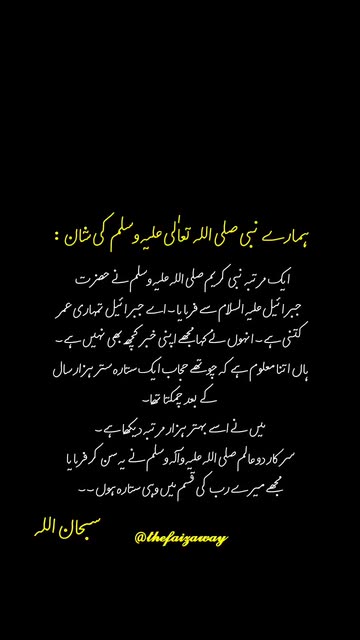 ہمارے نبی صلی اللہ تعالٰی علیہ وسلم کی شان :
ایک مرتبہ نبی کریم صلی اللہ علیہ وسلم نے حضرت
جبرائیل علیہ السلام سے فرمایا۔ اے جبرائیل تمہاری عمر
کتنی ہے۔ انہوں نے کہا مجھے اپنی خبر کچھ بھی نہیں ہے۔
ہاں اتنا معلوم ہے کہ چوتھے حجاب ایک ستارہ ستر ہزار سال
کے بعد چمکتا تھا۔
میں نے اسے بہتر ہزار مرتبہ دیکھا ہے۔
سرکار دو عالم صلی اللہ علیہ وآلہ وسلم نے یہ سن کر فرمایا
مجھے میرے رب کی قسم میں وہی ستارہ ہوں ۔۔
سبحان اللہ
@thefaizaway